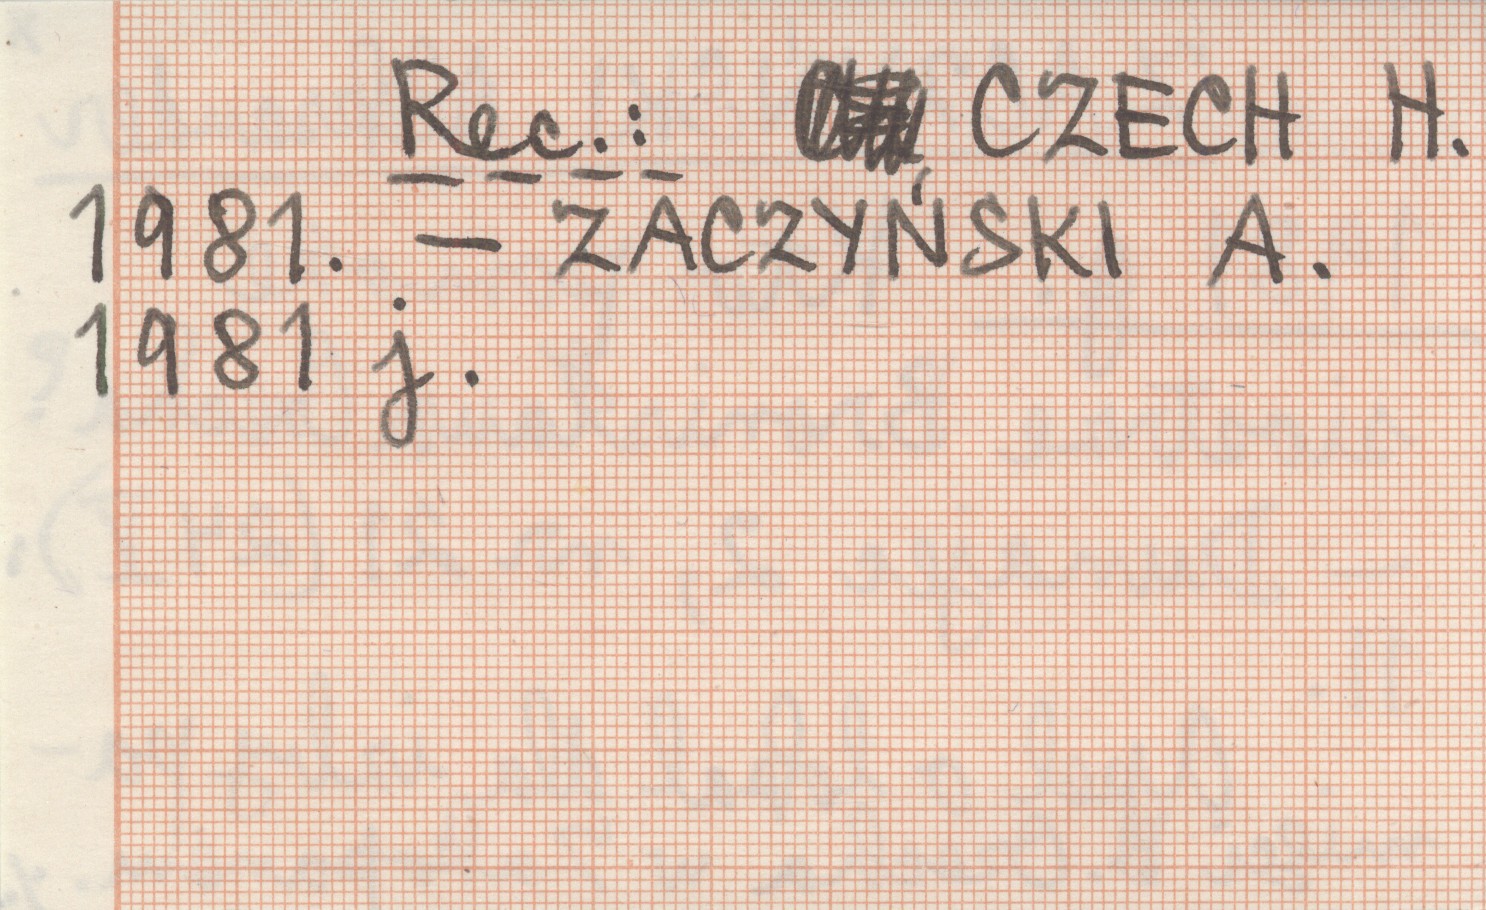 Rec.: CZECH H.
1981. — ZACZYŃSKI A.
1981 j.